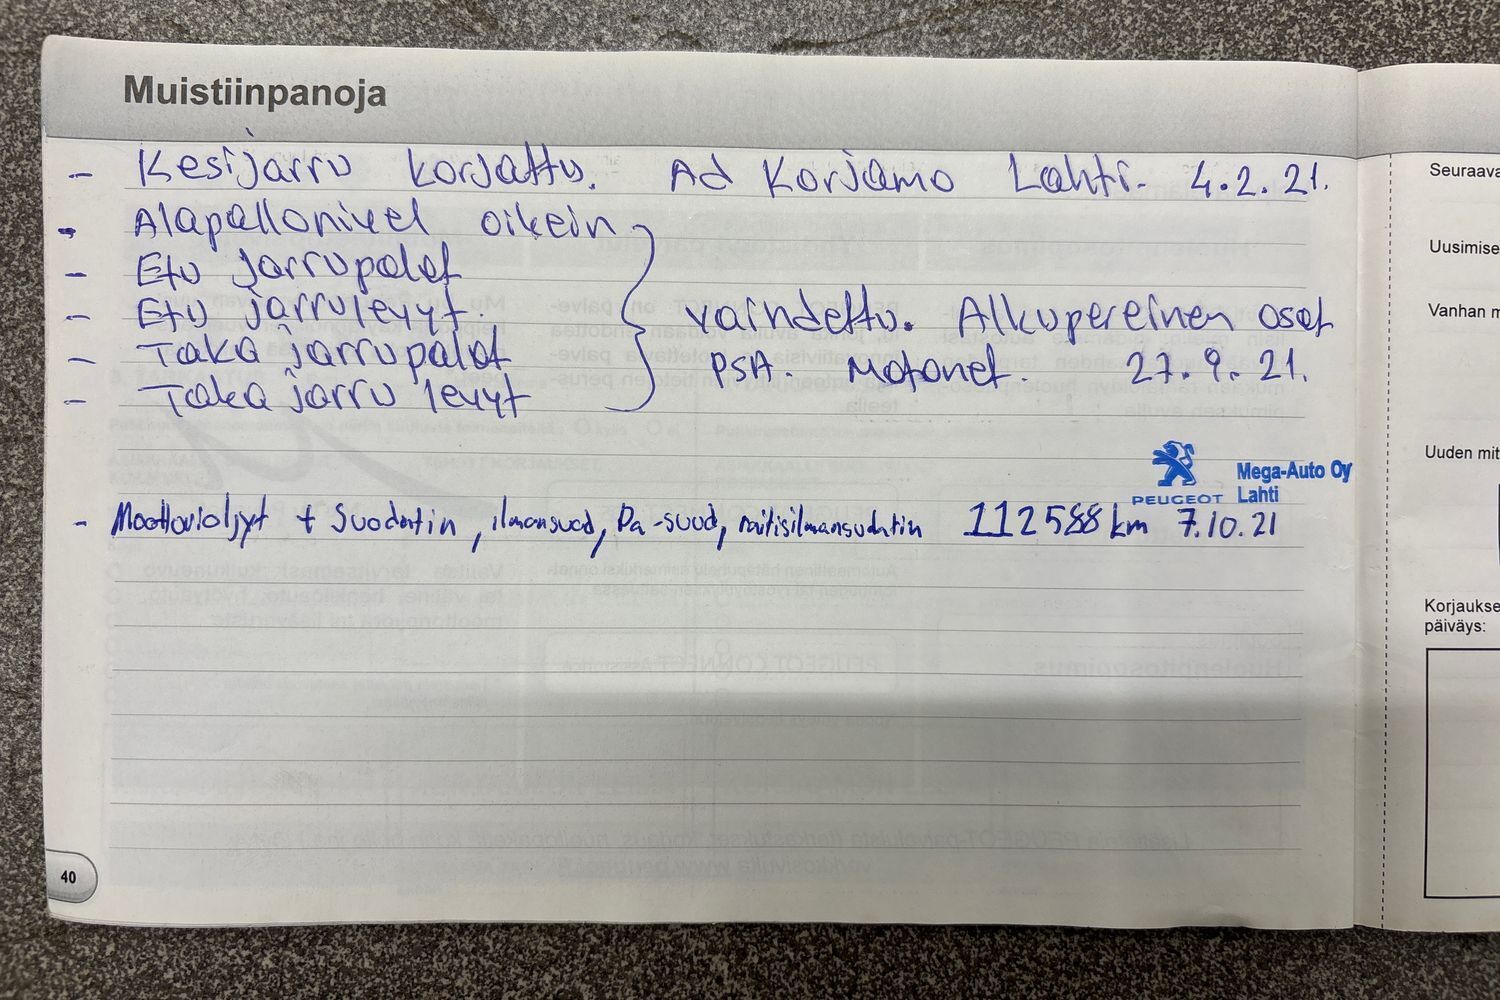 Muistiinpanoja
- Kesijarru korjattu. Ad Korjamo Lahti. 4.2.21.
- Alapallonivel oikein
- Etu jarrupalat
- Etu jarrulevyt.
- Taka jarrupalat
- Taka jarru levyt
vaihdettu. Alkupereinen osat
PSA. Motonet 27.9.21.
PEUGEOT
Mega-Auto Oy
Lahti
- Moottorioljyt + Suodatin, ilmansuod, Pa-suod, raitisilmansuodatin 112588 km 7.10.21
40
Seuraava
Uusimise
Vanhan m
Uuden mit
Korjaukse
päiväys: